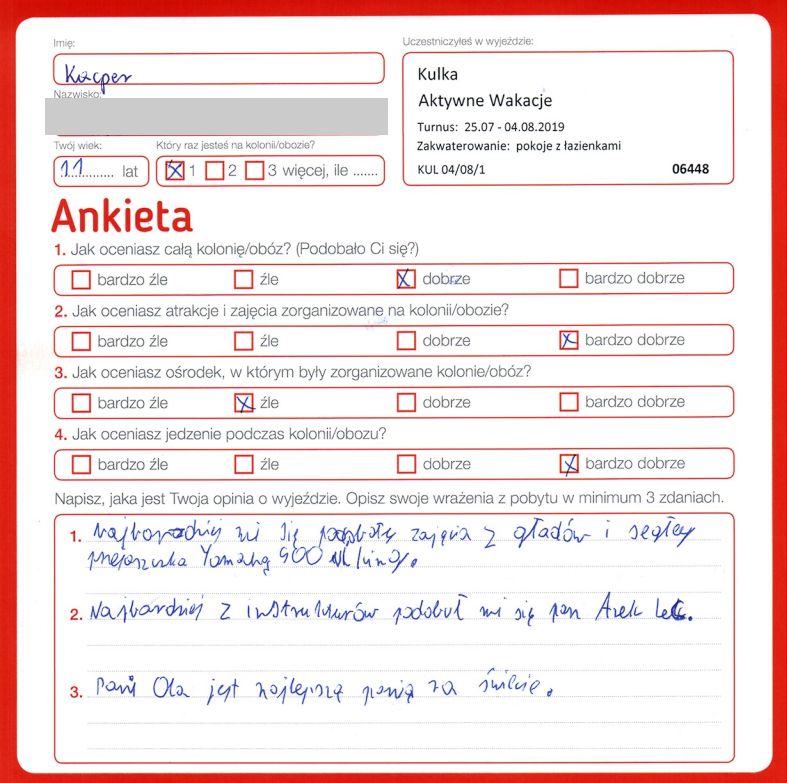 Imię:
Kacper
Nazwisko:
Twój wiek:
11 lat
Który raz jesteś na kolonii/obozie?
1 2 3 więcej, ile .......
Uczestniczyłeś w wyjeździe:
Kulka
Aktywne Wakacje
Turnus: 25.07 - 04.08.2019
Zakwaterowanie: pokoje z łazienkami
KUL 04/08/1 06448
Ankieta
1. Jak oceniasz całą kolonię/obóz? (Podobało Ci się?)
bardzo źle źle dobrze bardzo dobrze
2. Jak oceniasz atrakcje i zajęcia zorganizowane na kolonii/obozie?
bardzo źle źle dobrze bardzo dobrze
3. Jak oceniasz ośrodek, w którym były zorganizowane kolonie/obóz?
bardzo źle źle dobrze bardzo dobrze
4. Jak oceniasz jedzenie podczas kolonii/obozu?
bardzo źle źle dobrze bardzo dobrze
Napisz, jaka jest Twoja opinia o wyjeździe. Opisz swoje wrażenia z pobytu w minimum 3 zdaniach.
1. Najbardziej mi się zajęcia z i
Yamahą
2. Najbardziej z podobał mi się pan Arek
3. Pani Ola jest najlepszą panią na świecie.